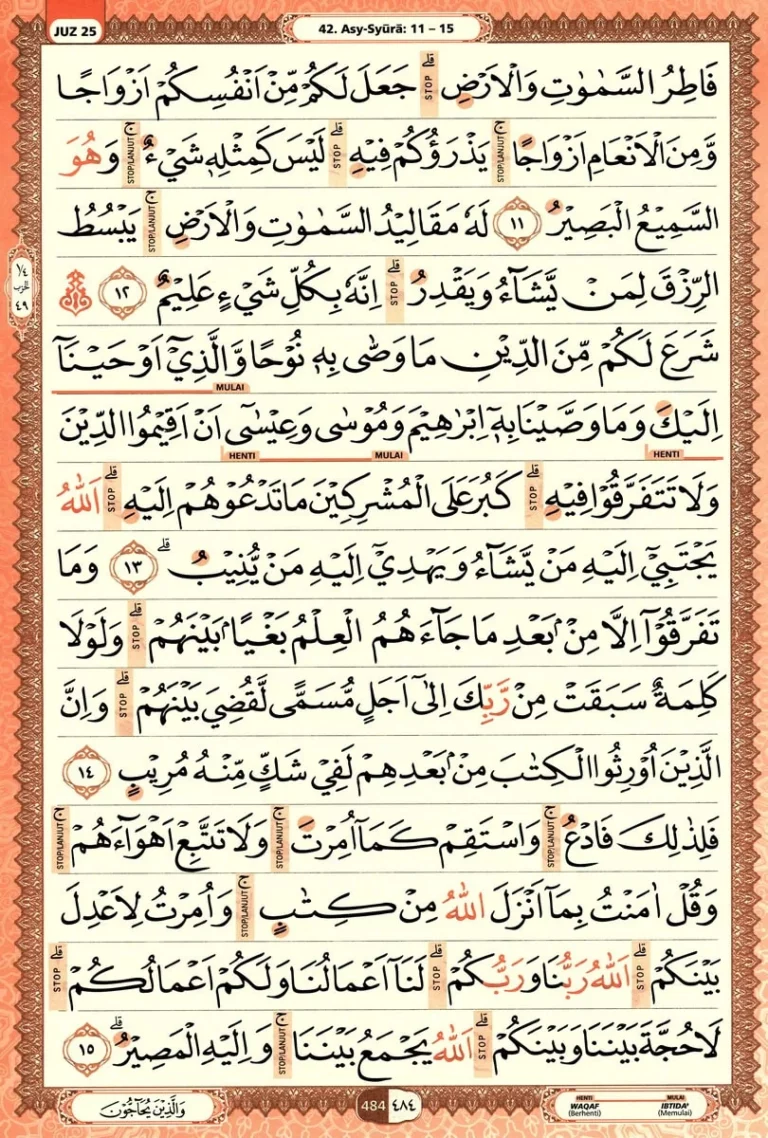 JUZ 25
42. Asy-Syūrā: 11 – 15
فَاطِرُ السَّمٰوٰتِ وَالْاَرْضِۗ STOP جَعَلَ لَكُمْ مِّنْ اَنْفُسِكُمْ اَزْوَاجًا
وَّمِنَ الْاَنْعَامِ اَزْوَاجًاۚ STOP/LANJUT يَذْرَؤُكُمْ فِيْهِۗ STOP لَيْسَ كَمِثْلِهٖ شَيْءٌۚ STOP/LANJUT وَهُوَ
السَّمِيْعُ الْبَصِيْرُ ١١ لَهٗ مَقَالِيْدُ السَّمٰوٰتِ وَالْاَرْضِۚ STOP/LANJUT يَبْسُطُ
الرِّزْقَ لِمَنْ يَّشَاۤءُ وَيَقْدِرُۗ STOP اِنَّهٗ بِكُلِّ شَيْءٍ عَلِيْمٌ ١٢
١/٤ الحزب ٤٩
شَرَعَ لَكُمْ مِّنَ الدِّيْنِ مَا وَصّٰى بِهٖ نُوْحًا وَّالَّذِيْٓ اَوْحَيْنَآ
MULAI
اِلَيْكَ وَمَا وَصَّيْنَا بِهٖٓ اِبْرٰهِيْمَ وَمُوْسٰى وَعِيْسٰٓى اَنْ اَقِيْمُوا الدِّيْنَ
HENTI MULAI HENTI
وَلَا تَتَفَرَّقُوْا فِيْهِۗ STOP كَبُرَ عَلَى الْمُشْرِكِيْنَ مَا تَدْعُوْهُمْ اِلَيْهِۗ STOP اَللّٰهُ
يَجْتَبِيْٓ اِلَيْهِ مَنْ يَّشَاۤءُ وَيَهْدِيْٓ اِلَيْهِ مَنْ يُّنِيْبُۗ ١٣ وَمَا
تَفَرَّقُوْٓا اِلَّا مِنْۢ بَعْدِ مَا جَاۤءَهُمُ الْعِلْمُ بَغْيًاۢ بَيْنَهُمْۗ STOP وَلَوْلَا
كَلِمَةٌ سَبَقَتْ مِنْ رَّبِّكَ اِلٰٓى اَجَلٍ مُّسَمًّى لَّقُضِيَ بَيْنَهُمْۗ STOP وَاِنَّ
الَّذِيْنَ اُوْرِثُوا الْكِتٰبَ مِنْۢ بَعْدِهِمْ لَفِيْ شَكٍّ مِّنْهُ مُرِيْبٍ ١٤
فَلِذٰلِكَ فَادْعُۚ STOP/LANJUT وَاسْتَقِمْ كَمَآ اُمِرْتَۚ STOP/LANJUT وَلَا تَتَّبِعْ اَهْوَاۤءَهُمْۚ STOP/LANJUT
وَقُلْ اٰمَنْتُ بِمَآ اَنْزَلَ اللّٰهُ مِنْ كِتٰبٍۚ STOP/LANJUT وَاُمِرْتُ لِاَعْدِلَ
بَيْنَكُمْۗ STOP اَللّٰهُ رَبُّنَا وَرَبُّكُمْۗ STOP لَنَآ اَعْمَالُنَا وَلَكُمْ اَعْمَالُكُمْۗ STOP
لَا حُجَّةَ بَيْنَنَا وَبَيْنَكُمْۗ STOP اَللّٰهُ يَجْمَعُ بَيْنَنَاۚ STOP/LANJUT وَاِلَيْهِ الْمَصِيْرُۗ ١٥
وَالَّذِيْنَ يُحَاۤجُّوْنَ
484 ٤٨٤
HENTI WAQAF (Berhenti) MULAI IBTIDA' (Memulai)